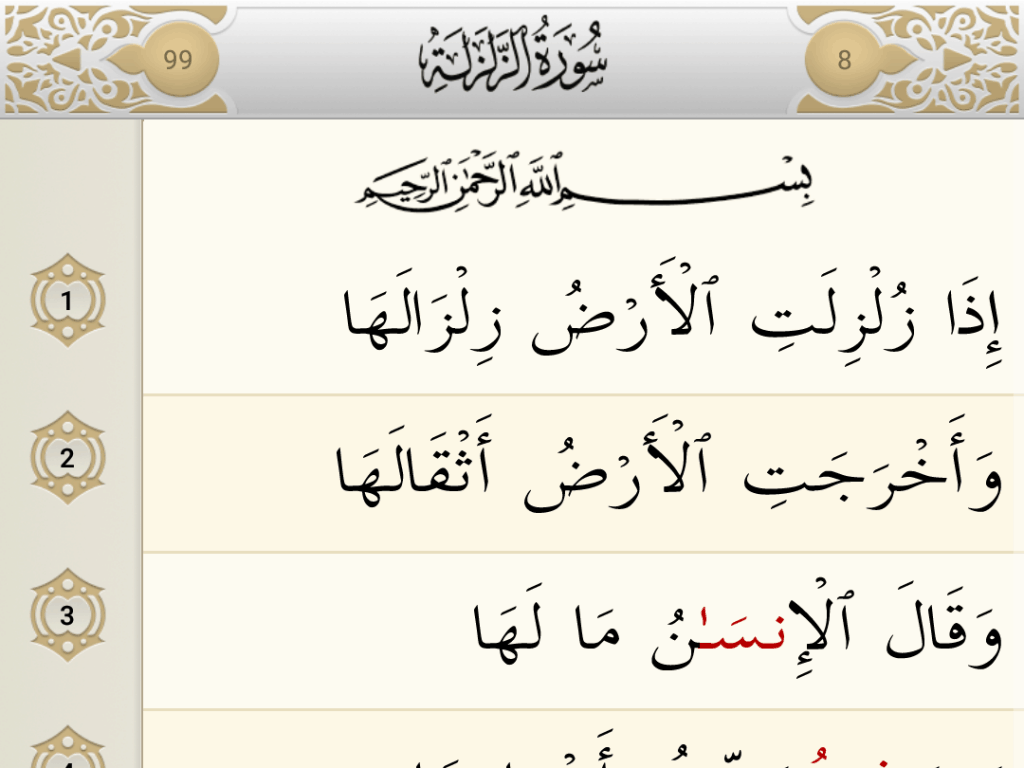 99 سُورَةُ الزَّلْزَلَةِ 8
بِسْمِ ٱللَّهِ ٱلرَّحْمَٰنِ ٱلرَّحِيمِ
1 إِذَا زُلْزِلَتِ ٱلْأَرْضُ زِلْزَالَهَا
2 وَأَخْرَجَتِ ٱلْأَرْضُ أَثْقَالَهَا
3 وَقَالَ ٱلْإِنسَـٰنُ مَا لَهَا